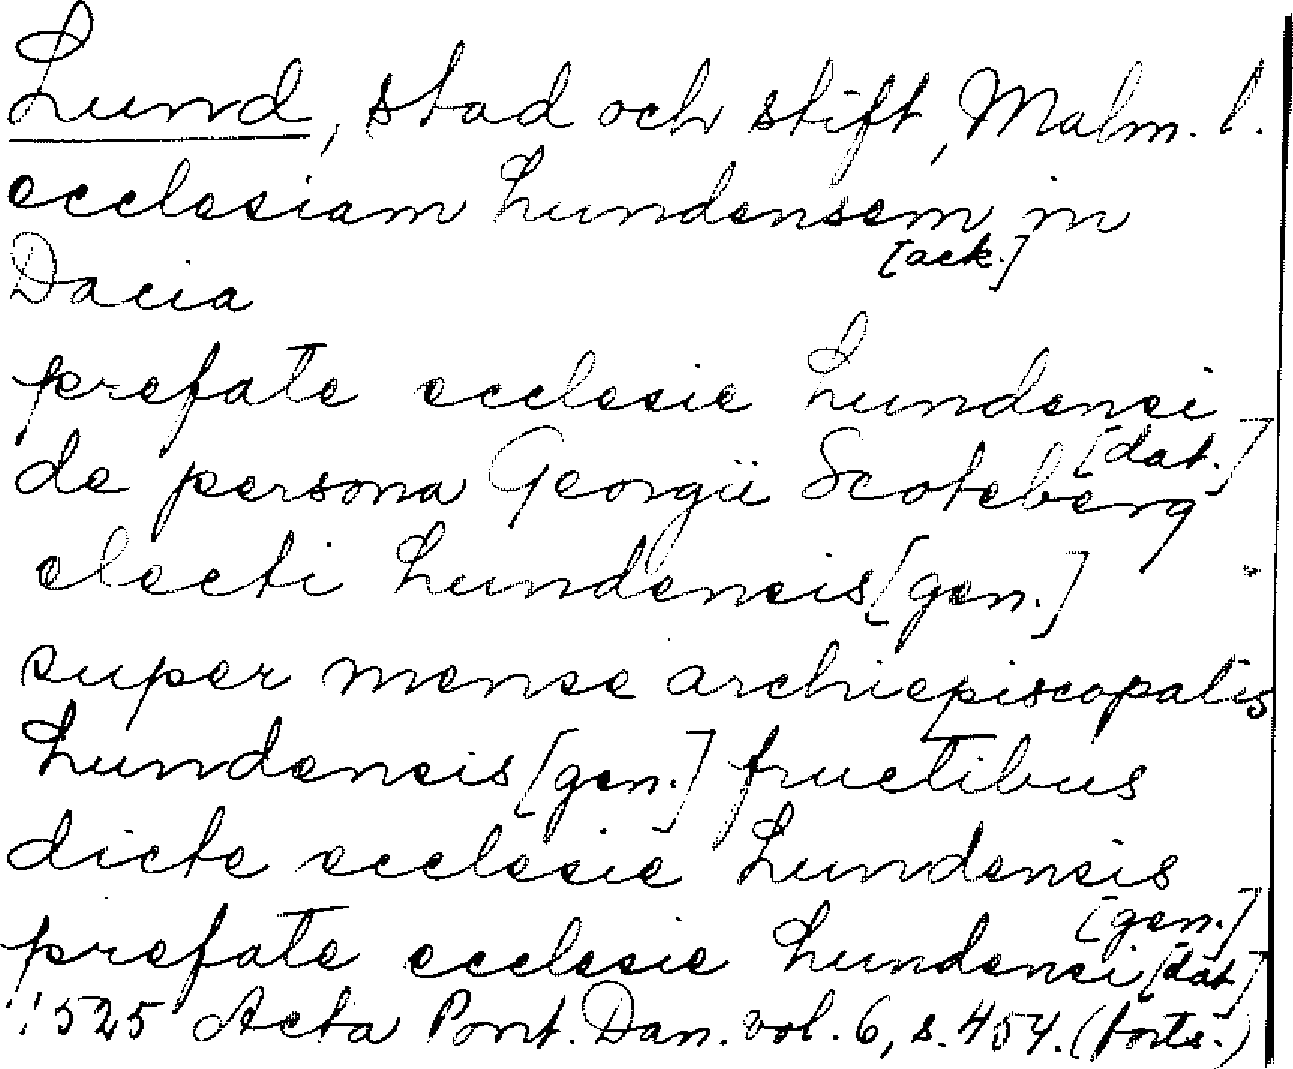 Lund, stad och stift, Malm. l.
ecclesiam Lundensem in
[ack.]
Dacia
prefate ecclesie Lundensi
[dat.]
de persona Georgii Scoteberg
electi Lundensis [gen.]
super mense archiepiscopalis
Lundensis [gen.] fructibus
dicte ecclesie Lundensis
[gen.]
prefate ecclesie Lundensi [dat.]
1525 Acta Pont. Dan. vol. 6, s. 454. (forts.)